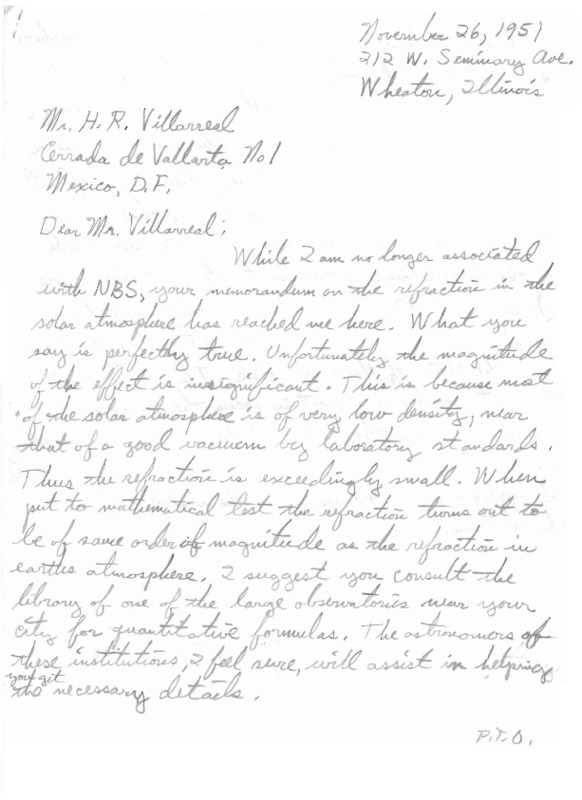 November 26, 1951
212 W. Seminary Ave.
Wheaton, Illinois
Mr. H. R. Villarreal
Cerrada de Vallarta No 1
Mexico, D.F.
Dear Mr. Villarreal;
While I am no longer associated
with NBS, your memorandum on the refraction in the
solar atmosphere has reached me here. What you
say is perfectly true. Unfortunately the magnitude
of the effect is insignificant. This is because most
of the solar atmosphere is of very low density, near
that of a good vacuum by laboratory standards.
Thus the refraction is exceedingly small. When
put to mathematical test the refraction turns out to
be of same order of magnitude as the refraction in
earths atmosphere. I suggest you consult the
library of one of the large observatories near your
city for quantitative formulas. The astronomers of
these institutions, I feel sure, will assist in helping
you get
the necessary details.
P.T.O.